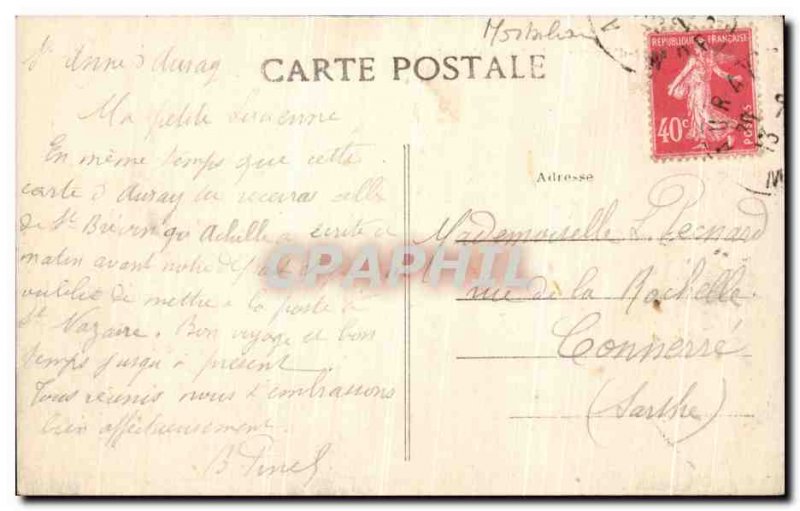 Morbihan
Ste Anne d'Auray
CARTE POSTALE
REPUBLIQUE FRANÇAISE
40c
POSTES
Ma petite Lucienne
En même temps que cette
carte d'Auray tu recevras celle
de St Brévin qu'Achille a écrite ce
matin avant notre départ et
de mettre à la poste à
St Nazaire. Bon voyage et bon
temps jusqu'à présent.
Tous réunis nous t'embrassons
bien affectueusement.
CPAPHIL
Adresse
Mademoiselle L.
rue de la Rochelle
Connerré
(Sarthe)